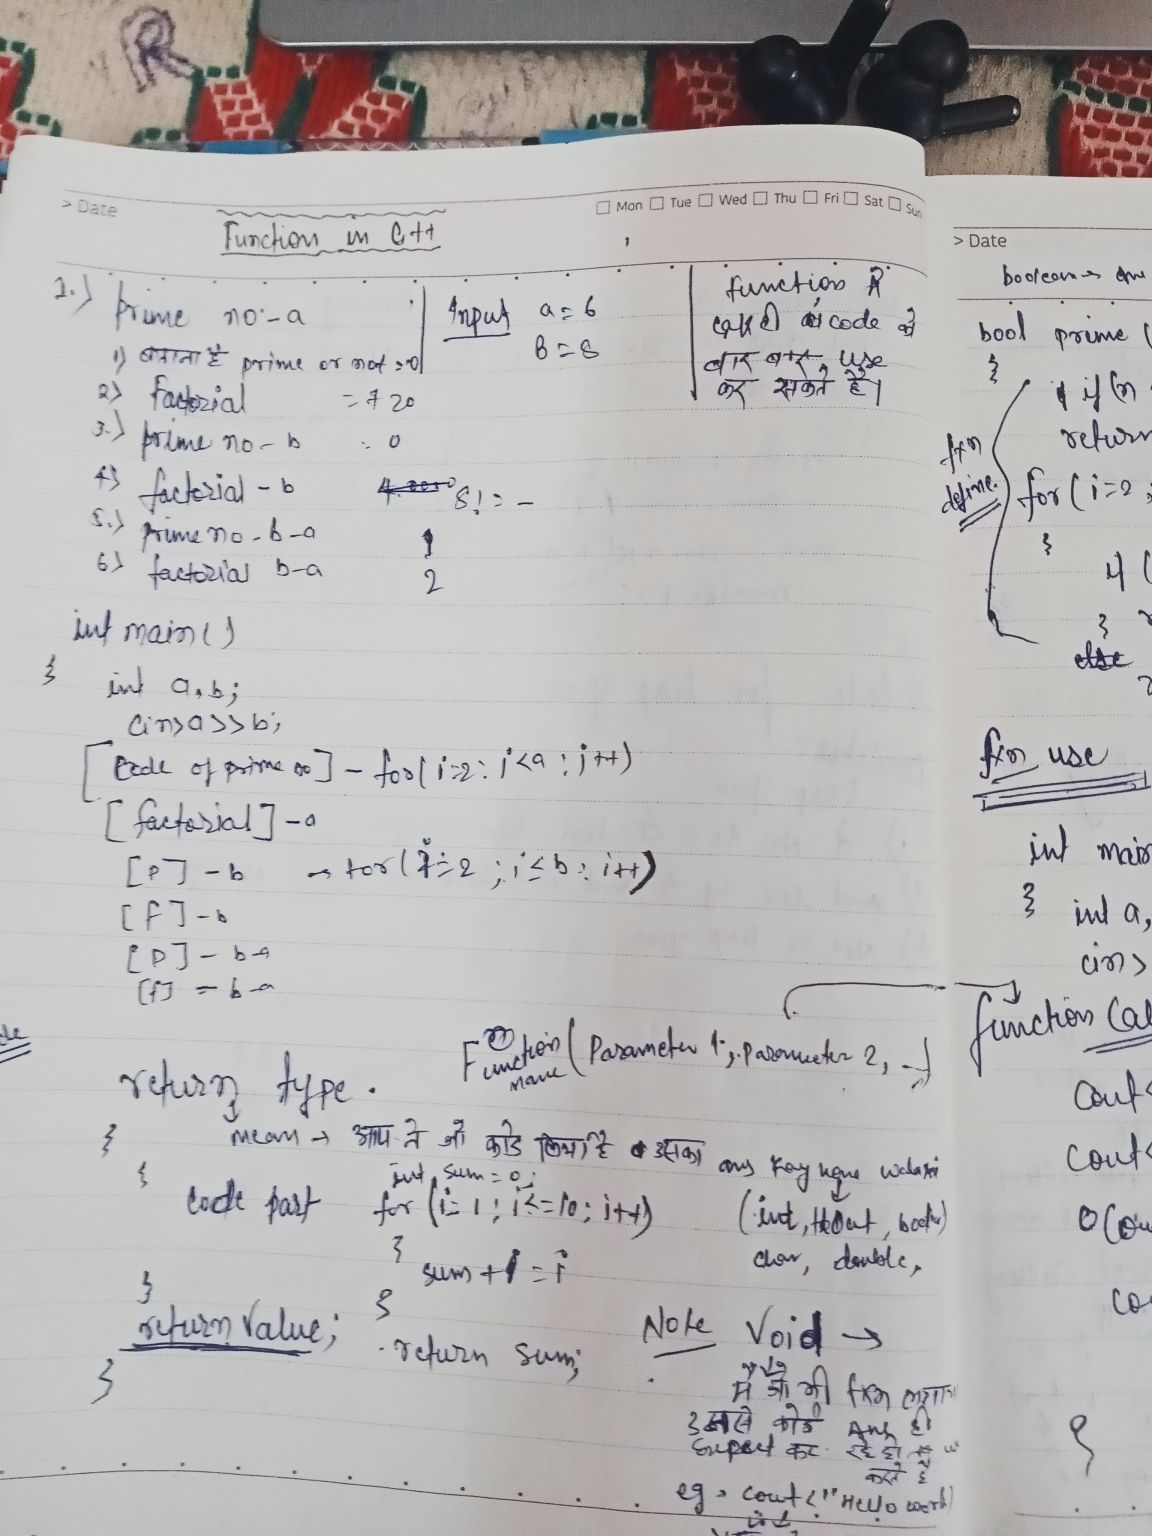 R
> Date
Mon Tue Wed Thu Fri Sat Sun
Function in C++
1.) prime no:-a
1) बताना है prime or not = 0
2) factorial = 720
3.) prime no - b : 0
4) factorial - b 8! = -
5.) prime no - b-a 1
6) factorial b-a 2
Input a = 6
B = 8
function में
code को
बार बार use
कर सकते है।
int main()
{
int a,b;
cin>a>>b;
[Code of prime no] - for( i=2: i<a ; i++)
[factorial] - a
[P] - b → for( i=2 ; i≤b ; i++)
[F] - b
[P] - b-a
[f] = b-a
Function name (Parameter 1, Parameter 2, --)
return type.
mean → आप ने जो कोड लिखा है उसका ans
{
{
int sum = 0;
code part for (i=1 ; i<=10; i++)
(int, float,
char, double,
{
sum + i = i
}
}
return value;
return sum;
}
Note Void →
में जो भी fxn
उससे कोई Ans ही
Expect कर रहे हो
करते है
eg → cout<"Hello
> Date
boolean →
bool prime (
{
if(n
return
fxn
define.
for( i=2 ;
{
if (
}
else
fxn use
int main
{
int a,
cin>
function Cal
cout<
cout<
}